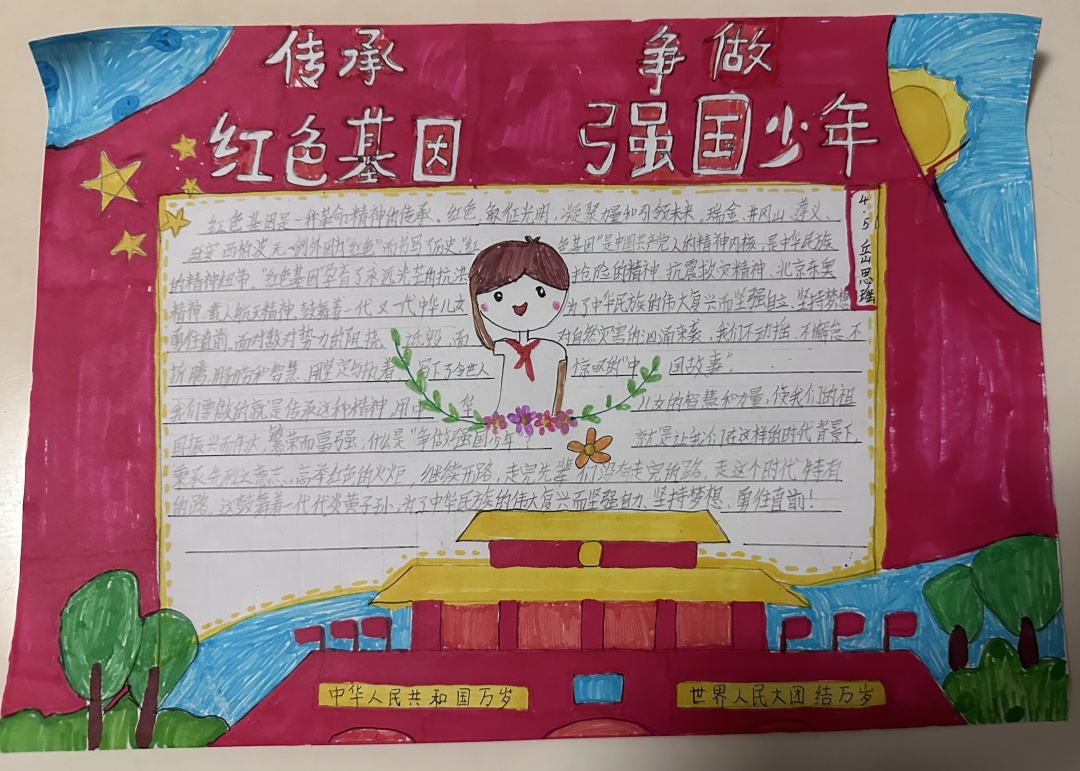 传承 争做
红色基因 强国少年
4.5 岳思瑶
红色基因是一种革命精神的传承。红色,象征光明,凝聚力量和引领未来。瑞金、井冈山、遵义、
延安、西柏坡无一例外因"红色"而书写了历史。"红色基因"是中国共产党人的精神内核,是中华民族
的精神纽带。"红色基因"孕育了永远光芒的抗洪抢险的精神、抗震救灾精神、北京东奥
精神、载人航天精神,鼓舞着一代又一代中华儿女为了中华民族的伟大复兴而坚强自立、坚持梦想
勇往直前。面对敌对势力的阻挠、诋毁,面对自然灾害的汹涌来袭,我们不动摇、不懈怠、不
折腾,用勤劳和智慧、用坚定与执着,写下了令世人惊叹的"中国故事"。
我们要做的就是传承这种精神,用中华儿女的智慧和力量,使我们的祖
国振兴而伟大,繁荣而富强,什么是"争做强国少年"?就是让我们在这样的时代背景下,
秉承先烈之意志,高举红色的火炬,继续开路,走完先辈们没有走完的路,走这个时代特有
的路。这鼓舞着一代代炎黄子孙,为了中华民族的伟大复兴而坚强自力、坚持梦想、勇往直前!
中华人民共和国万岁 世界人民大团结万岁